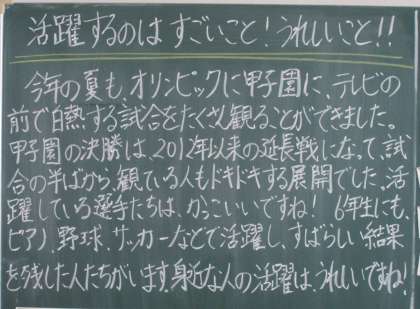 活躍するのはすごいこと!うれしいこと!!
今年の夏も、オリンピックに甲子園に、テレビの
前で白熱する試合をたくさん観ることができました。
甲子園の決勝は、2012年以来の延長戦になって、試
合の半ばから、観ている人もドキドキする展開でした。活
躍している選手たちは、かっこいいですね! 6年生にも、
ピアノ、野球、サッカーなどで活躍し、すばらしい結果
を残した人たちがいます。身近な人の活躍は、うれしいですね!